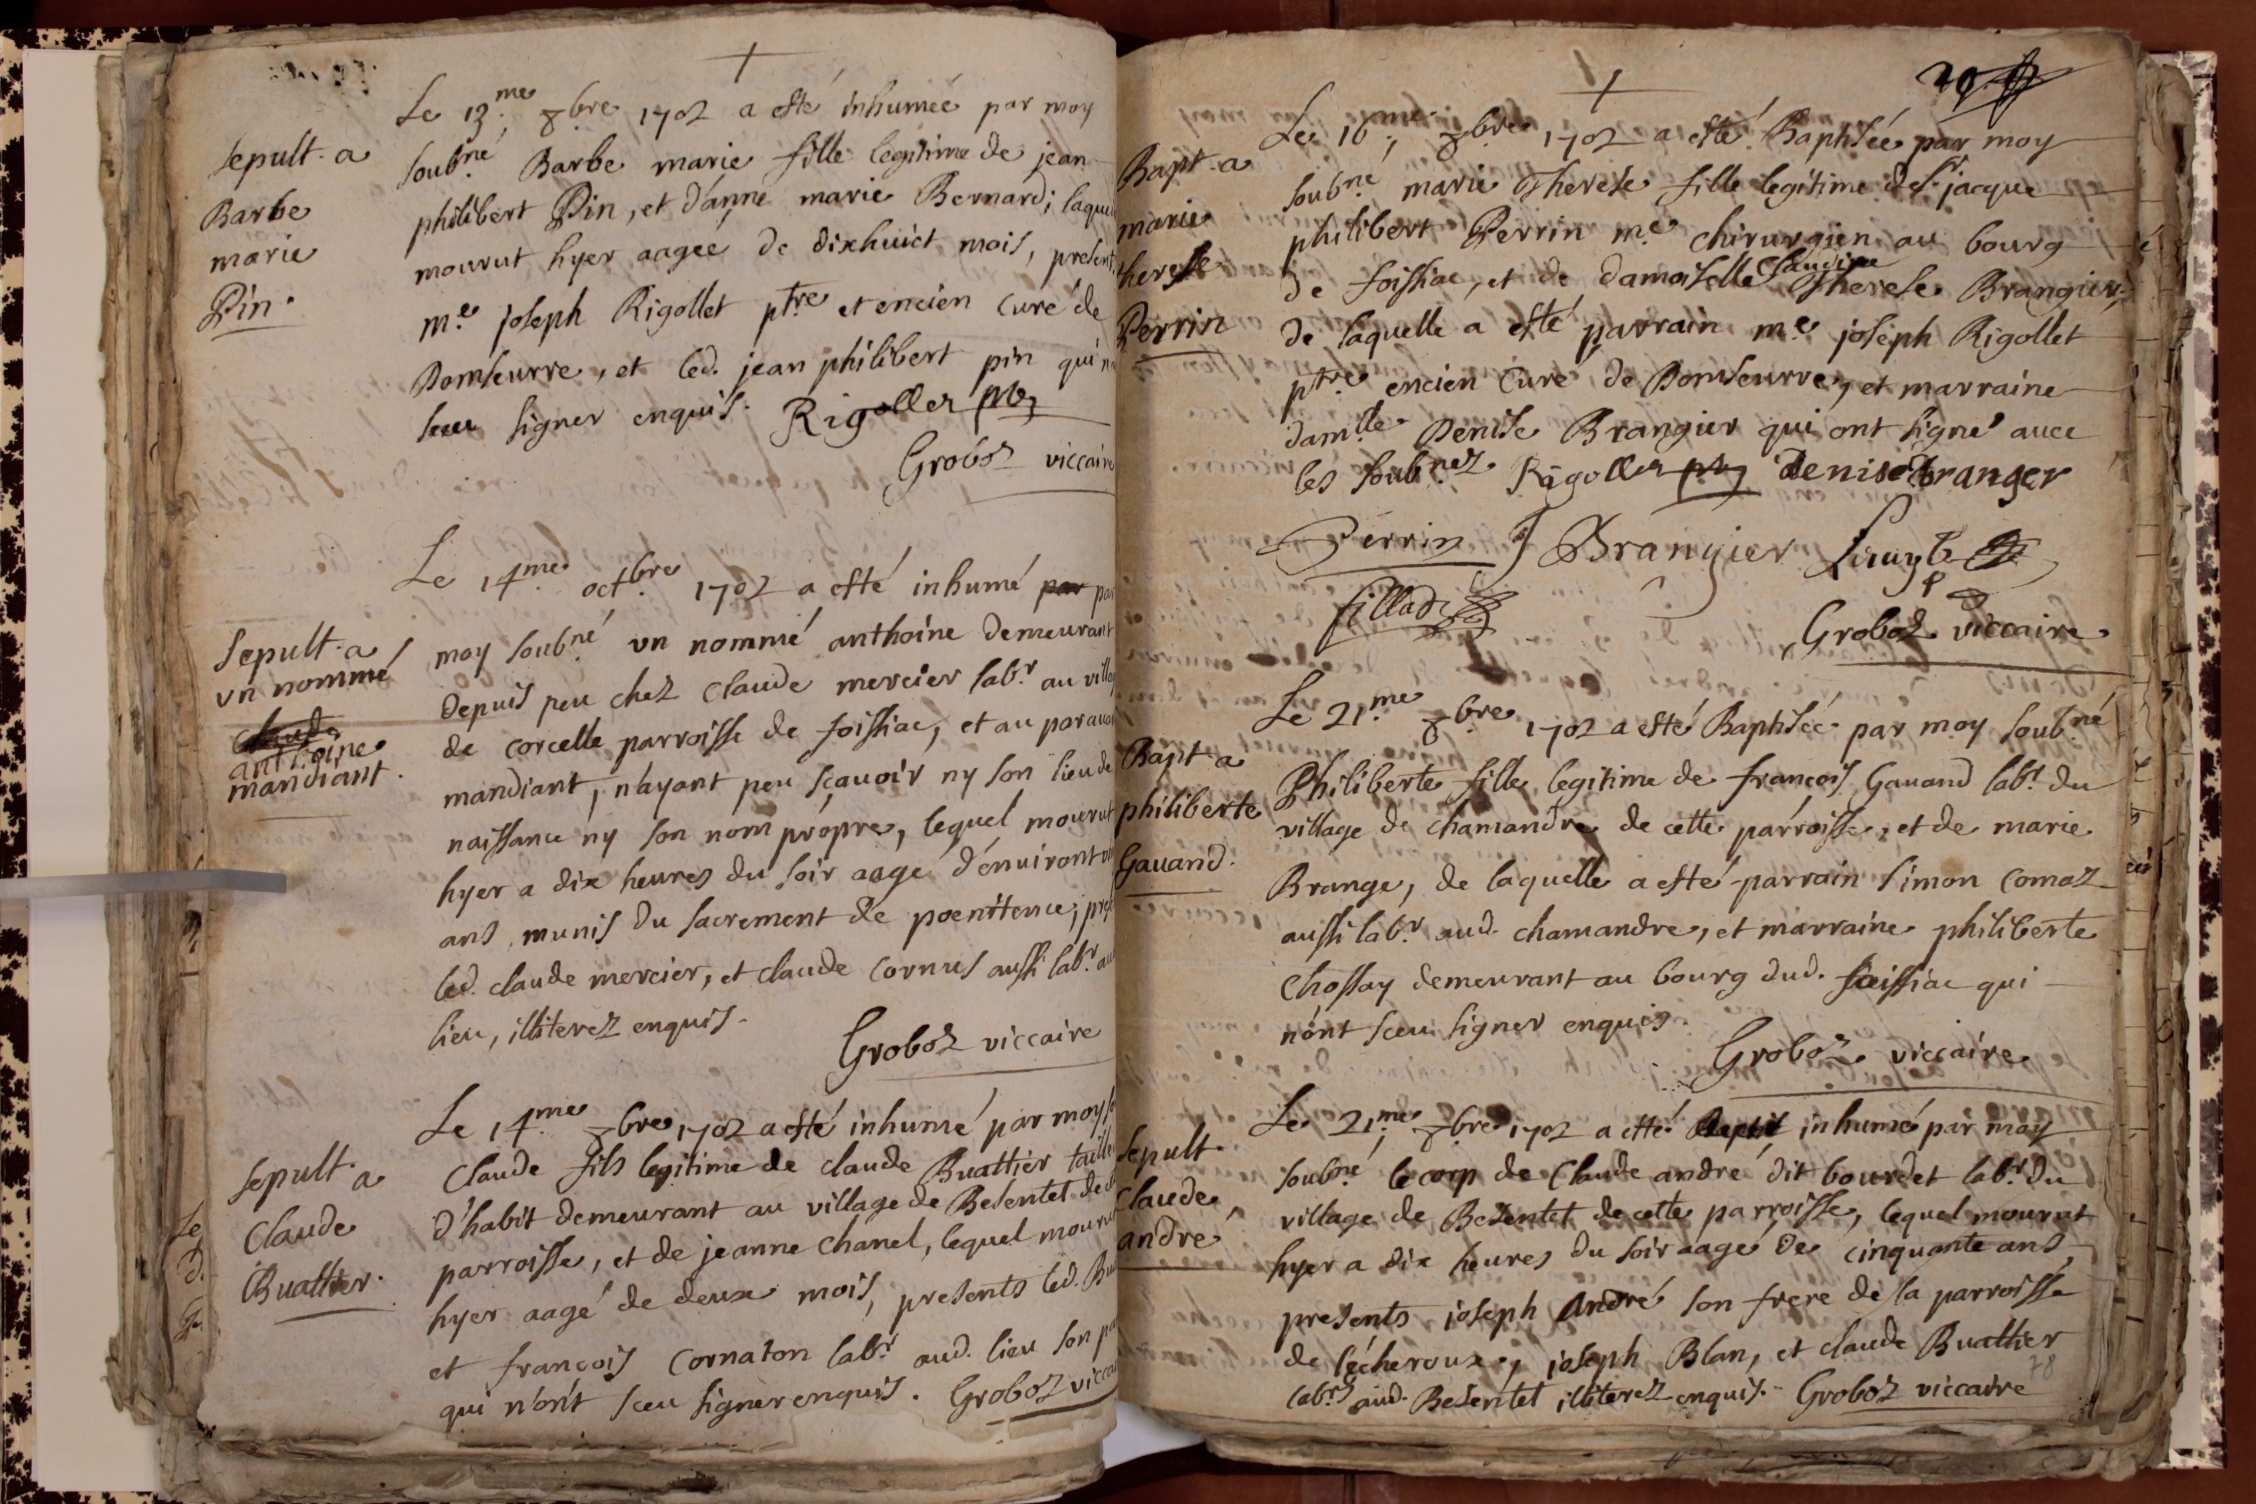 Sepult. a
Barbe
marie
Pin.
Le 13.me 8bre 1702 a esté inhumée par moy
soubné Barbe marie fille legitime de jean
philibert Pin, et d'anne marie Bernard; laque
mourut hyer aagée de dixhuict mois, present
m.e joseph Rigollet ptre et encien curé de
Domseurre, et led. jean philibert pin qui n
sceu signer enquis. Rigollet pbr
Groboz viccaire
Sepult. a
un nommé
claude
anthoine
mandiant.
Le 14.me octbre 1702 a esté inhumé par par
moy soubné un nommé anthoine demeurant
depuis peu chez Claude mercier labr. au villa
de corcelle parroisse de foissiac, et au parauan
mandiant, n'ayant peu sçavoir ny son lieu de
naissance ny son nom propre, lequel mourut
hyer a dix heures du soir aagé d'environt
ans, munis du sacrement de poenitence, pres
led. claude mercier, et claude cornus aussi labr. au
lieu, illiterez enquis.
Groboz viccaire
Sepult. a
Claude
Buattier.
Le 14.me 8bre 1702 a esté inhumé par moy s
Claude fils legitime de claude Buattier taille
d'habit demeurant au village de Besentet de
parroisse, et de jeanne Chanel, lequel mouru
hyer aagé de deux mois, presents led. Bu
et françois Cornaton labr. aud. lieu son pa
qui n'ont sceu signer enquis. Groboz vicca
20
Bapt. a
marie
therese
Perrin
Le 16.me 8bre 1702 a esté Baptisée par moy
soubné marie Therese fille legitime de Sr jacque
philibert Perrin m.e chirurgien au bourg
de foissiac, et de damoiselle Claudine Therese Brangier,
de laquelle a esté parrain m.e joseph Rigollet
ptre encien Curé de Domseurre, et marraine
damlle Denise Brangier qui ont signé avec
les soubnez Rigollet pbr Denise Branger
Perrin J Brangier
Groboz viccaire
Bapt. a
philiberte
Gavand.
Le 21.me 8bre 1702 a esté Baptisée par moy soubné
Philiberte fille legitime de françois Gavand labr. du
village de chamandre de cette parroisse, et de marie
Brange, de laquelle a esté parrain simon comaz
aussi labr. aud. chamandre, et marraine philiberte
Chossay demeurant au bourg dud. foissiac qui
n'ont sceu signer enquis.
Groboz viccaire
Sepult.
claude
andré
Le 21.me 8bre 1702 a esté Baptis inhumé par moy
soubné le corp de Claude andré dit bourdet labr. du
village de Besentet de cette parroisse, lequel mourut
hyer a dix heures du soir aagé de cinquante ans,
presents joseph André son frere de la parroisse
de l'écheroux, joseph Blan, et claude Buattier
labrs aud. Besentet illiterez enquis. Groboz viccaire
78